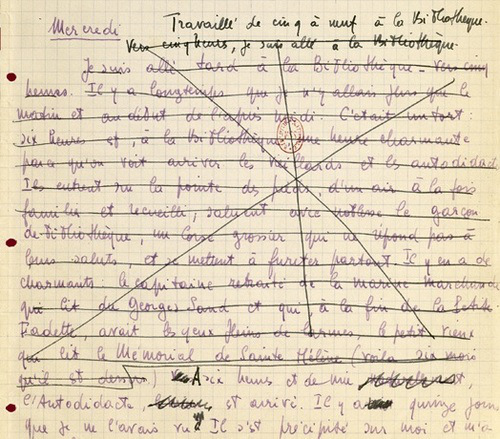 Mercredi
Travaillé de cinq à neuf à la Bibliothèque.
Vers cinq heures, je suis allé à la Bibliothèque.
Je suis allé tard à la Bibliothèque – vers cinq
heures. Il y a longtemps que je n'y allais plus que le
matin et au début de l'après midi. C'était un tort:
six heures est, à la Bibliothèque une heure charmante
parce qu'on voit arriver les vieillards et les autodidact
Ils entrent sur la pointe des pieds, d'un air à la fois
familier et recueilli, saluent avec noblesse le garçon
de Bibliothèque, un Corse grossier qui ne répond pas à
leurs saluts, et se mettent à fureter partout. Il y en a de
charmants: le capitaine retraité de la marine marchande
qui lit du Georges Sand et qui, à la fin de la Petite
Fadette, avait les yeux pleins de larmes. le petit vieux
qui lit le Mémorial de Sainte Hélène (voilà six mois
qu'il est dessus) A six heures et demie
l'Autodidacte est arrivé. Il y a quinze jours
que je ne l'avais vu. Il s'est précipité sur moi et m'a